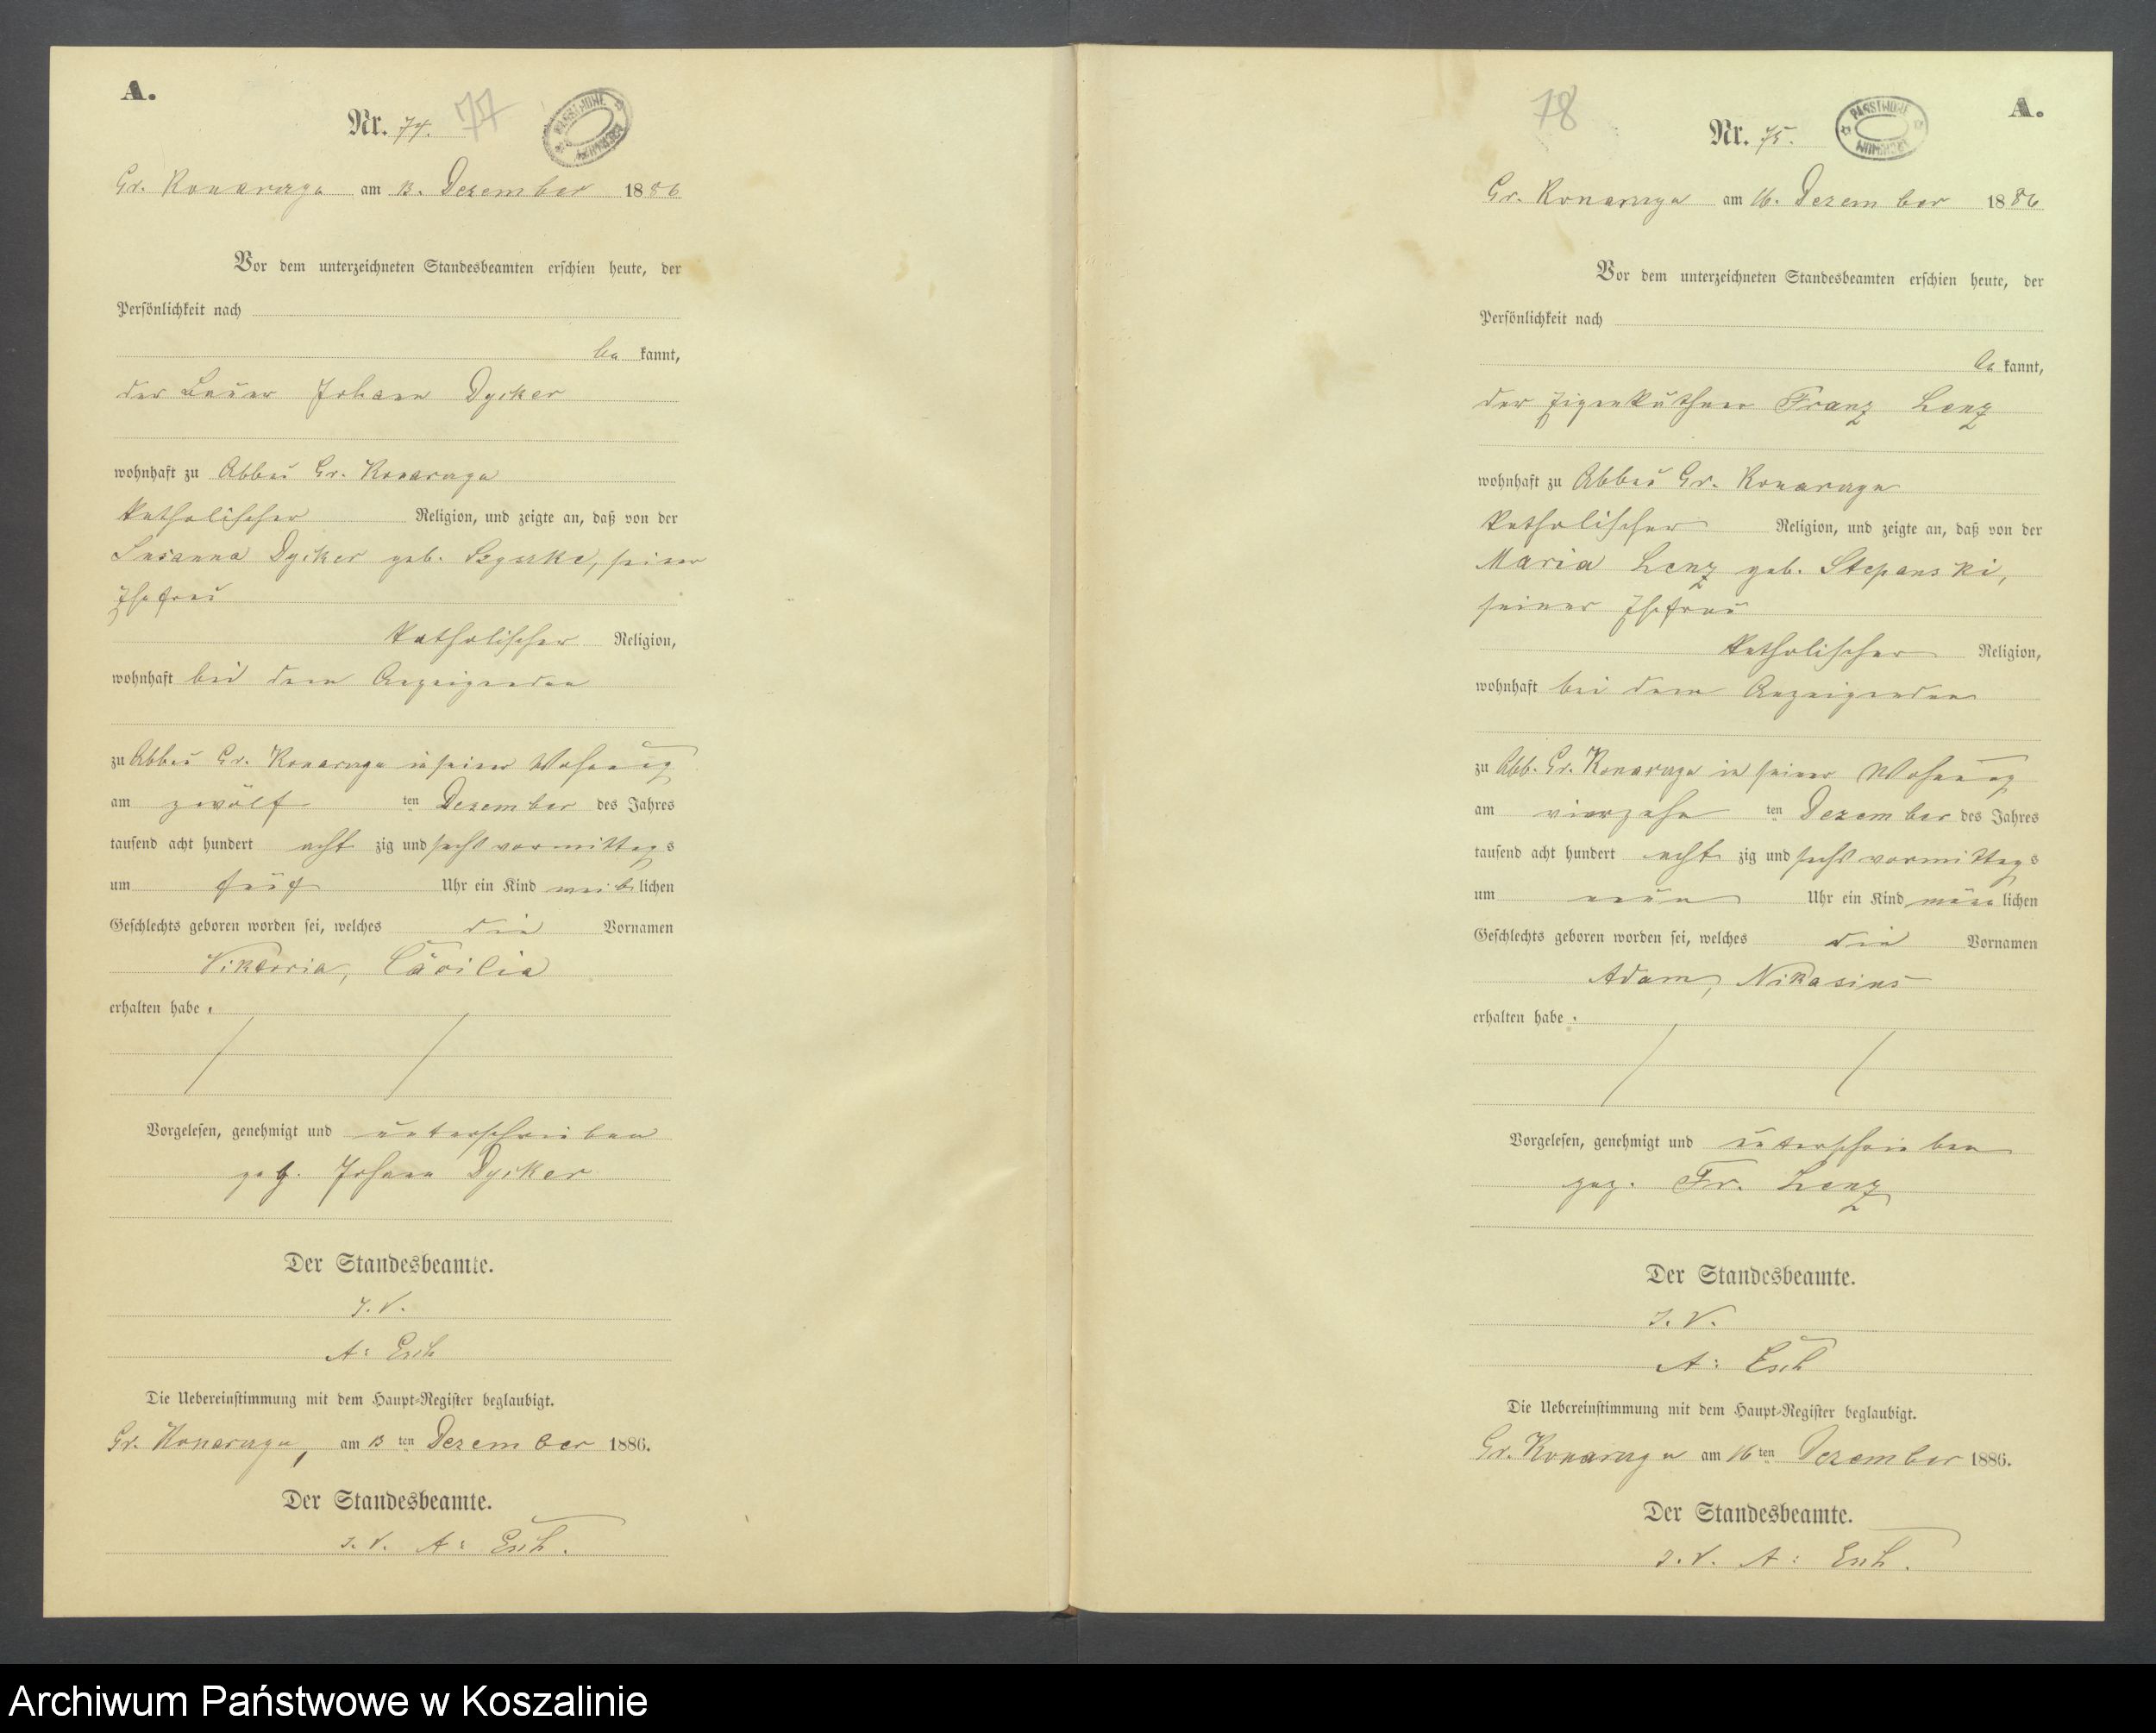 A.
Nr. 74. 77
Gr. Konarczyn am 13. Dezember 1886
Vor dem unterzeichneten Standesbeamten erschien heute, der
Persönlichkeit nach
be kannt,
der Bauer Johann Dycker
wohnhaft zu Abbau Gr. Konarczyn
katholischer Religion, und zeigte an, daß von der
Susanna Dycker geb. seiner
Ehefrau
katholischer Religion,
wohnhaft bei dem Anzeigenden
zu Abbau Gr. Konarczyn in seiner Wohnung
am zwölf ten Dezember des Jahres
tausend acht hundert acht zig und sechs vormittags
um fünf Uhr ein Kind weiblichen
Geschlechts geboren worden sei, welches die Vornamen
Viktoria, Cäcilia
erhalten habe.
Vorgelesen, genehmigt und unterschrieben
gez. Johann Dycker
Der Standesbeamte.
J. V.
A: Esch
Die Uebereinstimmung mit dem Haupt-Register beglaubigt.
Gr. Konarczyn, am 13 ten Dezember 1886.
Der Standesbeamte.
J. V. A: Esch.
78 A.
Nr. 75.
Gr. Konarczyn am 16. Dezember 1886
Vor dem unterzeichneten Standesbeamten erschien heute, der
Persönlichkeit nach
be kannt,
der Eigenkäthner Franz Lenz
wohnhaft zu Abbau Gr. Konarczyn
katholischer Religion, und zeigte an, daß von der
Maria Lenz geb. Stepanski,
seiner Ehefrau
katholischer Religion,
wohnhaft bei dem Anzeigenden
zu Abb. Gr. Konarczyn in seiner Wohnung
am vierzehn ten Dezember des Jahres
tausend acht hundert acht zig und sechs vormittags
um neun Uhr ein Kind männlichen
Geschlechts geboren worden sei, welches die Vornamen
Adam, Nikasius
erhalten habe.
Vorgelesen, genehmigt und unterschrieben
gez. Fr. Lenz
Der Standesbeamte.
J. V.
A: Esch
Die Uebereinstimmung mit dem Haupt-Register beglaubigt.
Gr. Konarczyn am 16 ten Dezember 1886.
Der Standesbeamte.
J. V. A: Esch.
Archiwum Państwowe w Koszalinie